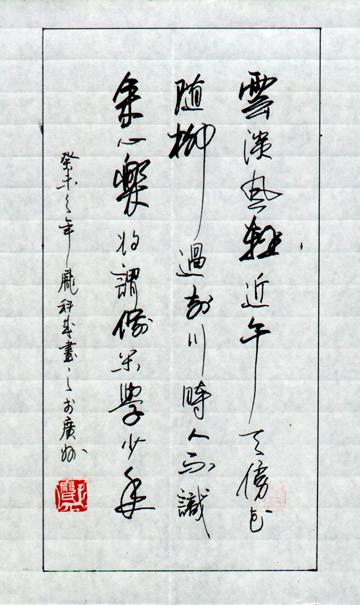 雲淡風輕近午天傍花
随柳過前川時人不識
余心樂将謂偷閑學少年
癸未之年龐科書之於廣州